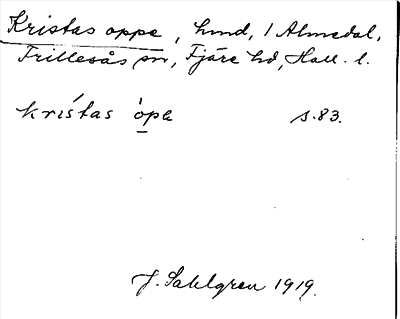 Kristas oppe, hmd, i Almedal,
Frillesås sn, Fjäre hd, Hall. l.
krístas òpe s. 83.
J. Sahlgren 1919.